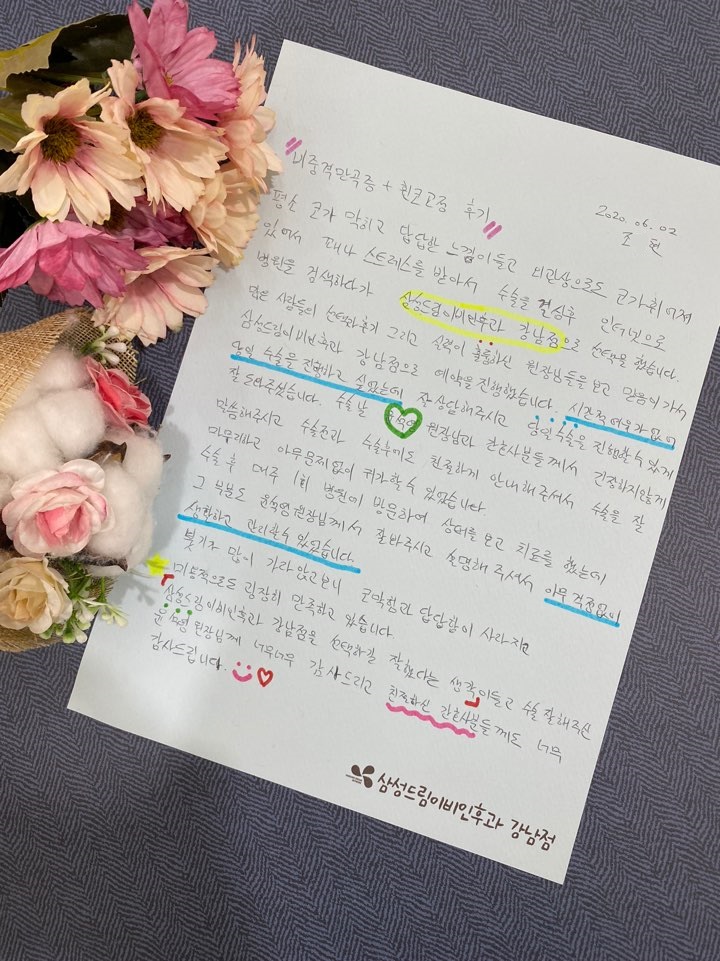 비중격만곡증 + 휜코교정 후기
2020.06.02
조 현
평소 코가 막히고 답답한 느낌이들고 미관상으로도 코가 휘어져
있어서 꽤나 스트레스를 받아서 수술을 결심후 인터넷으로
병원을 검색하다가 삼성드림이비인후과 강남점으로 선택을 했습니다.
많은 사람들의 선택과 후기 그리고 실력이 훌륭하신 원장님들을 보고 믿음이 가서
삼성드림이비인후과 강남점으로 예약을 진행했습니다. 시간적 여유가 없어
당일 수술을 진행하고 싶었는데 잘 상담해주시고 당일수술을 진행할수 있게
잘 도와주셨습니다. 수술날 원장님과 간호사분들께서 긴장하지않게
말씀해주시고 수술전과 수술후에도 친절하게 안내해주셔서 수술을 잘
마무리하고 아무문제없이 귀가할수 있었습니다
수술 후 매주 1회 병원에 방문하여 상태를 보고 치료를 했는데
그 부분도 윤석영 원장님께서 잘봐주시고 설명해 주셔서 아무 걱정없이
생활하고 관리할수 있었습니다.
붓기가 많이 가라앉고보니 코막힘과 답답함이 사라지고
미용적으로도 굉장히 만족하고 있습니다.
삼성드림이비인후과 강남점을 선택하길 잘했다는 생각이들고 수술 잘해주신
윤석영 원장님께 너무너무 감사드리고 친절하신 간호사분들께도 너무
감사드립니다.
삼성드림이비인후과 강남점